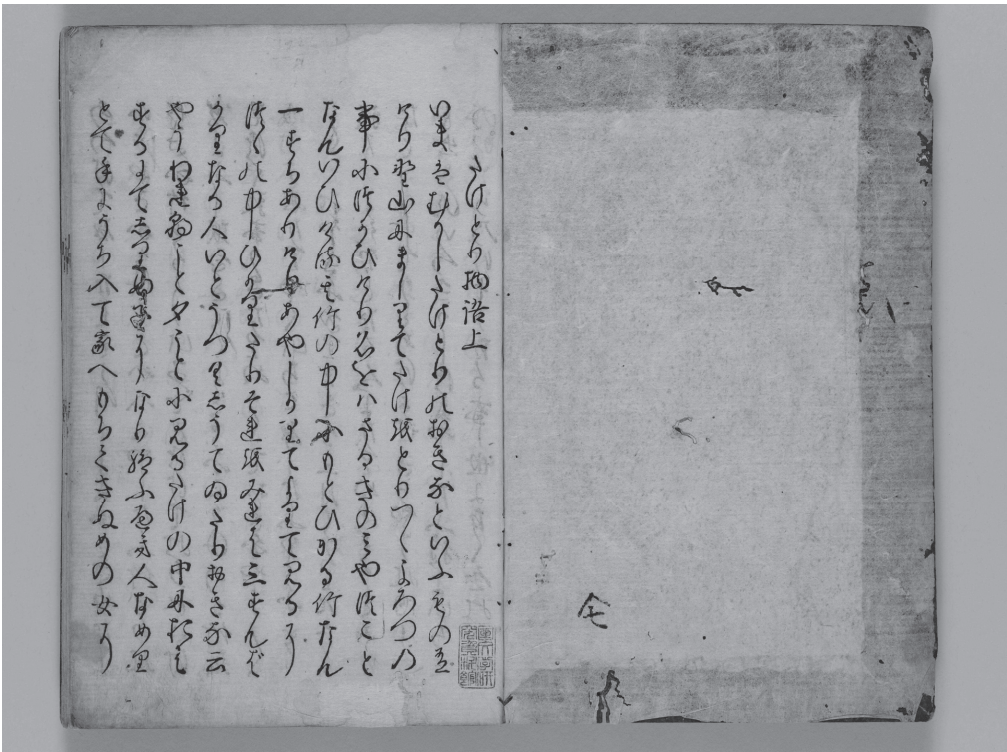 たけとり物語上
いまはむかしたけとりのおきなといふもの有
けり野山にましりてたけをとりつゝよろつの
事につかひけり名をはさるきのみやつこと
なんいひける其竹の中にもとひかる竹なん
一すちありけりあやしかりてよりて見るに
つゝの中ひかりたりそれをみれは三すんは
かりなる人いとうつくしうてゐたりおきな云
やうわれ朝こと夕ことに見るたけの中におは
するにてしりぬ子になり給ふへき人なめり
とて手にうち入て家へもちてきぬめの女に